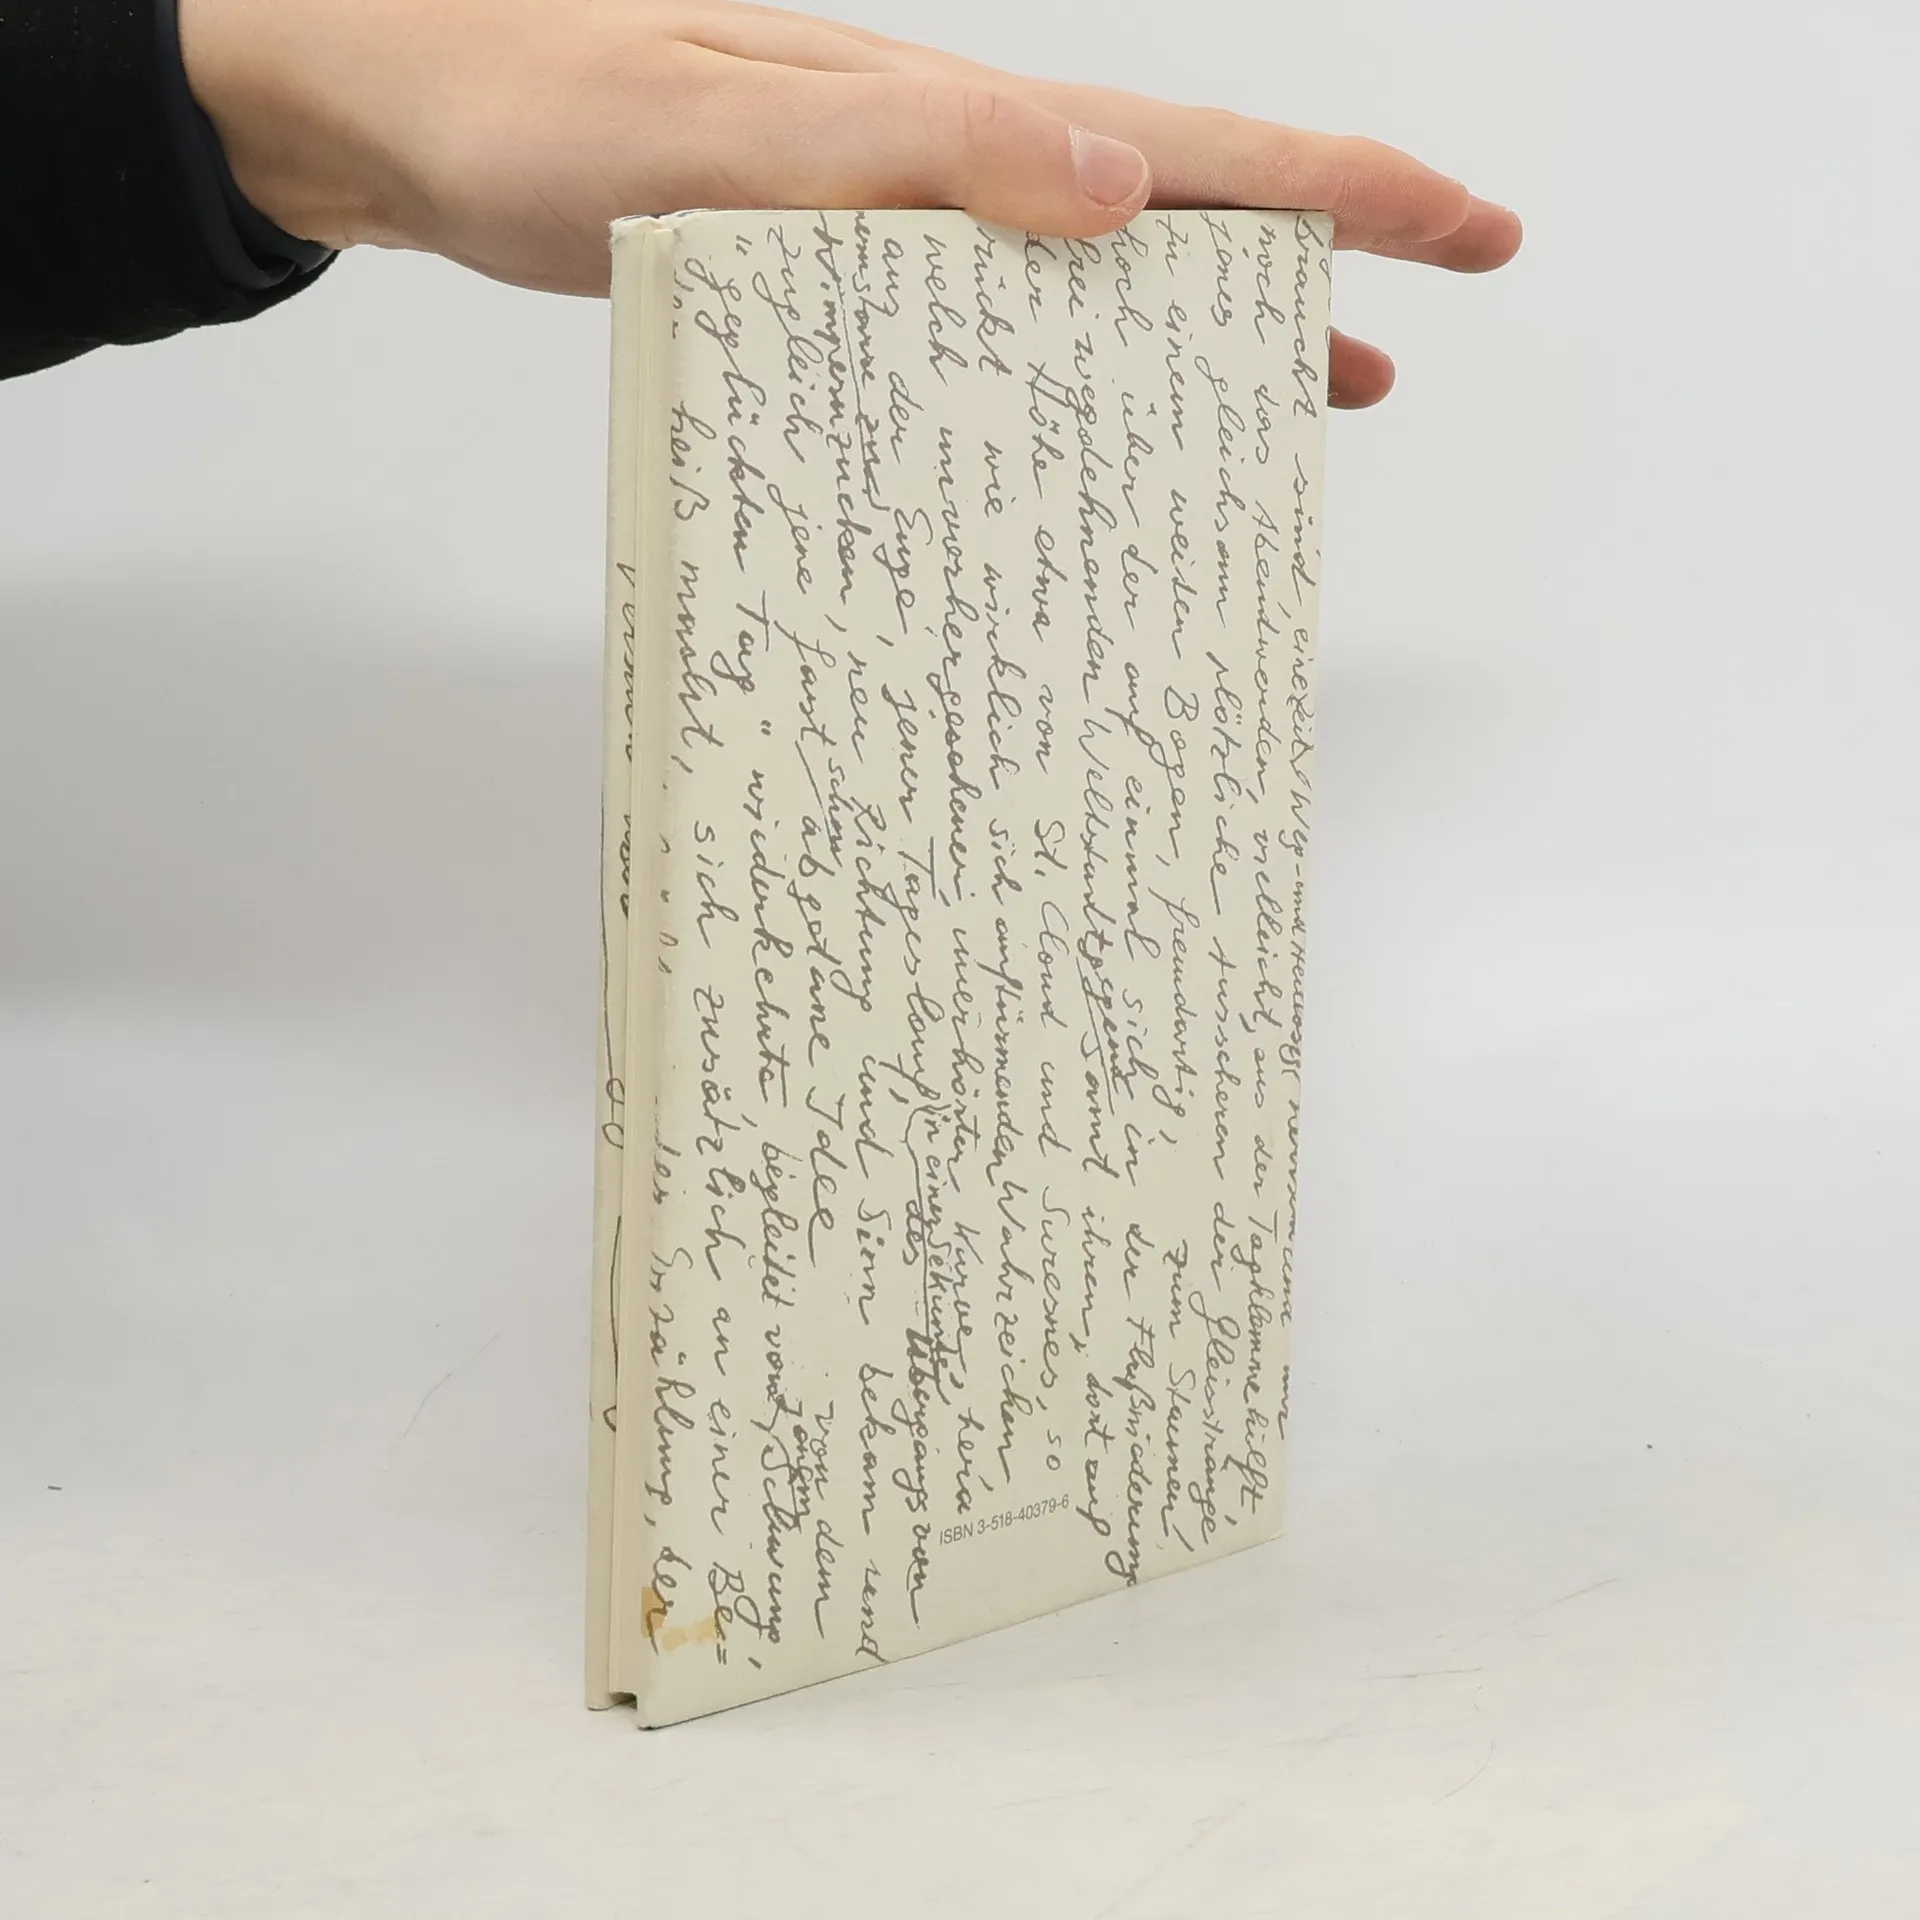 braucht sind, eine
noch das Abendwerden, vielleicht, aus der Tagklemme hülft,
jenes gleichsam plötzliche Ausscheren der Gleisstränge
zu einem weiten Bogen, fremdartig, zum Staunen,
hoch über der auf einmal sich in der Flußniederung
frei wegdehnenden Weltstadt samt ihren, dort auf
der Höhe etwa von St. Cloud und Suresnes, so
rückt wie wirklich sich auftürmenden Wahrzeichen
welch unvorhergesehener, unerhörter Kurve,
aus der Enge, jener Tageslauf, in einer Sekunde des Übergangs von
Wimpernzucken, neu Richtung und Sinn bekam und
zugleich jene fast schon abgetane Idee von dem
"geglückten Tag" wiederkehrte, begleitet von Schwung,
heiß macht, sich zusätzlich an einer Be=
der Erzählung, der
Versuch
ISBN 3-518-40379-6